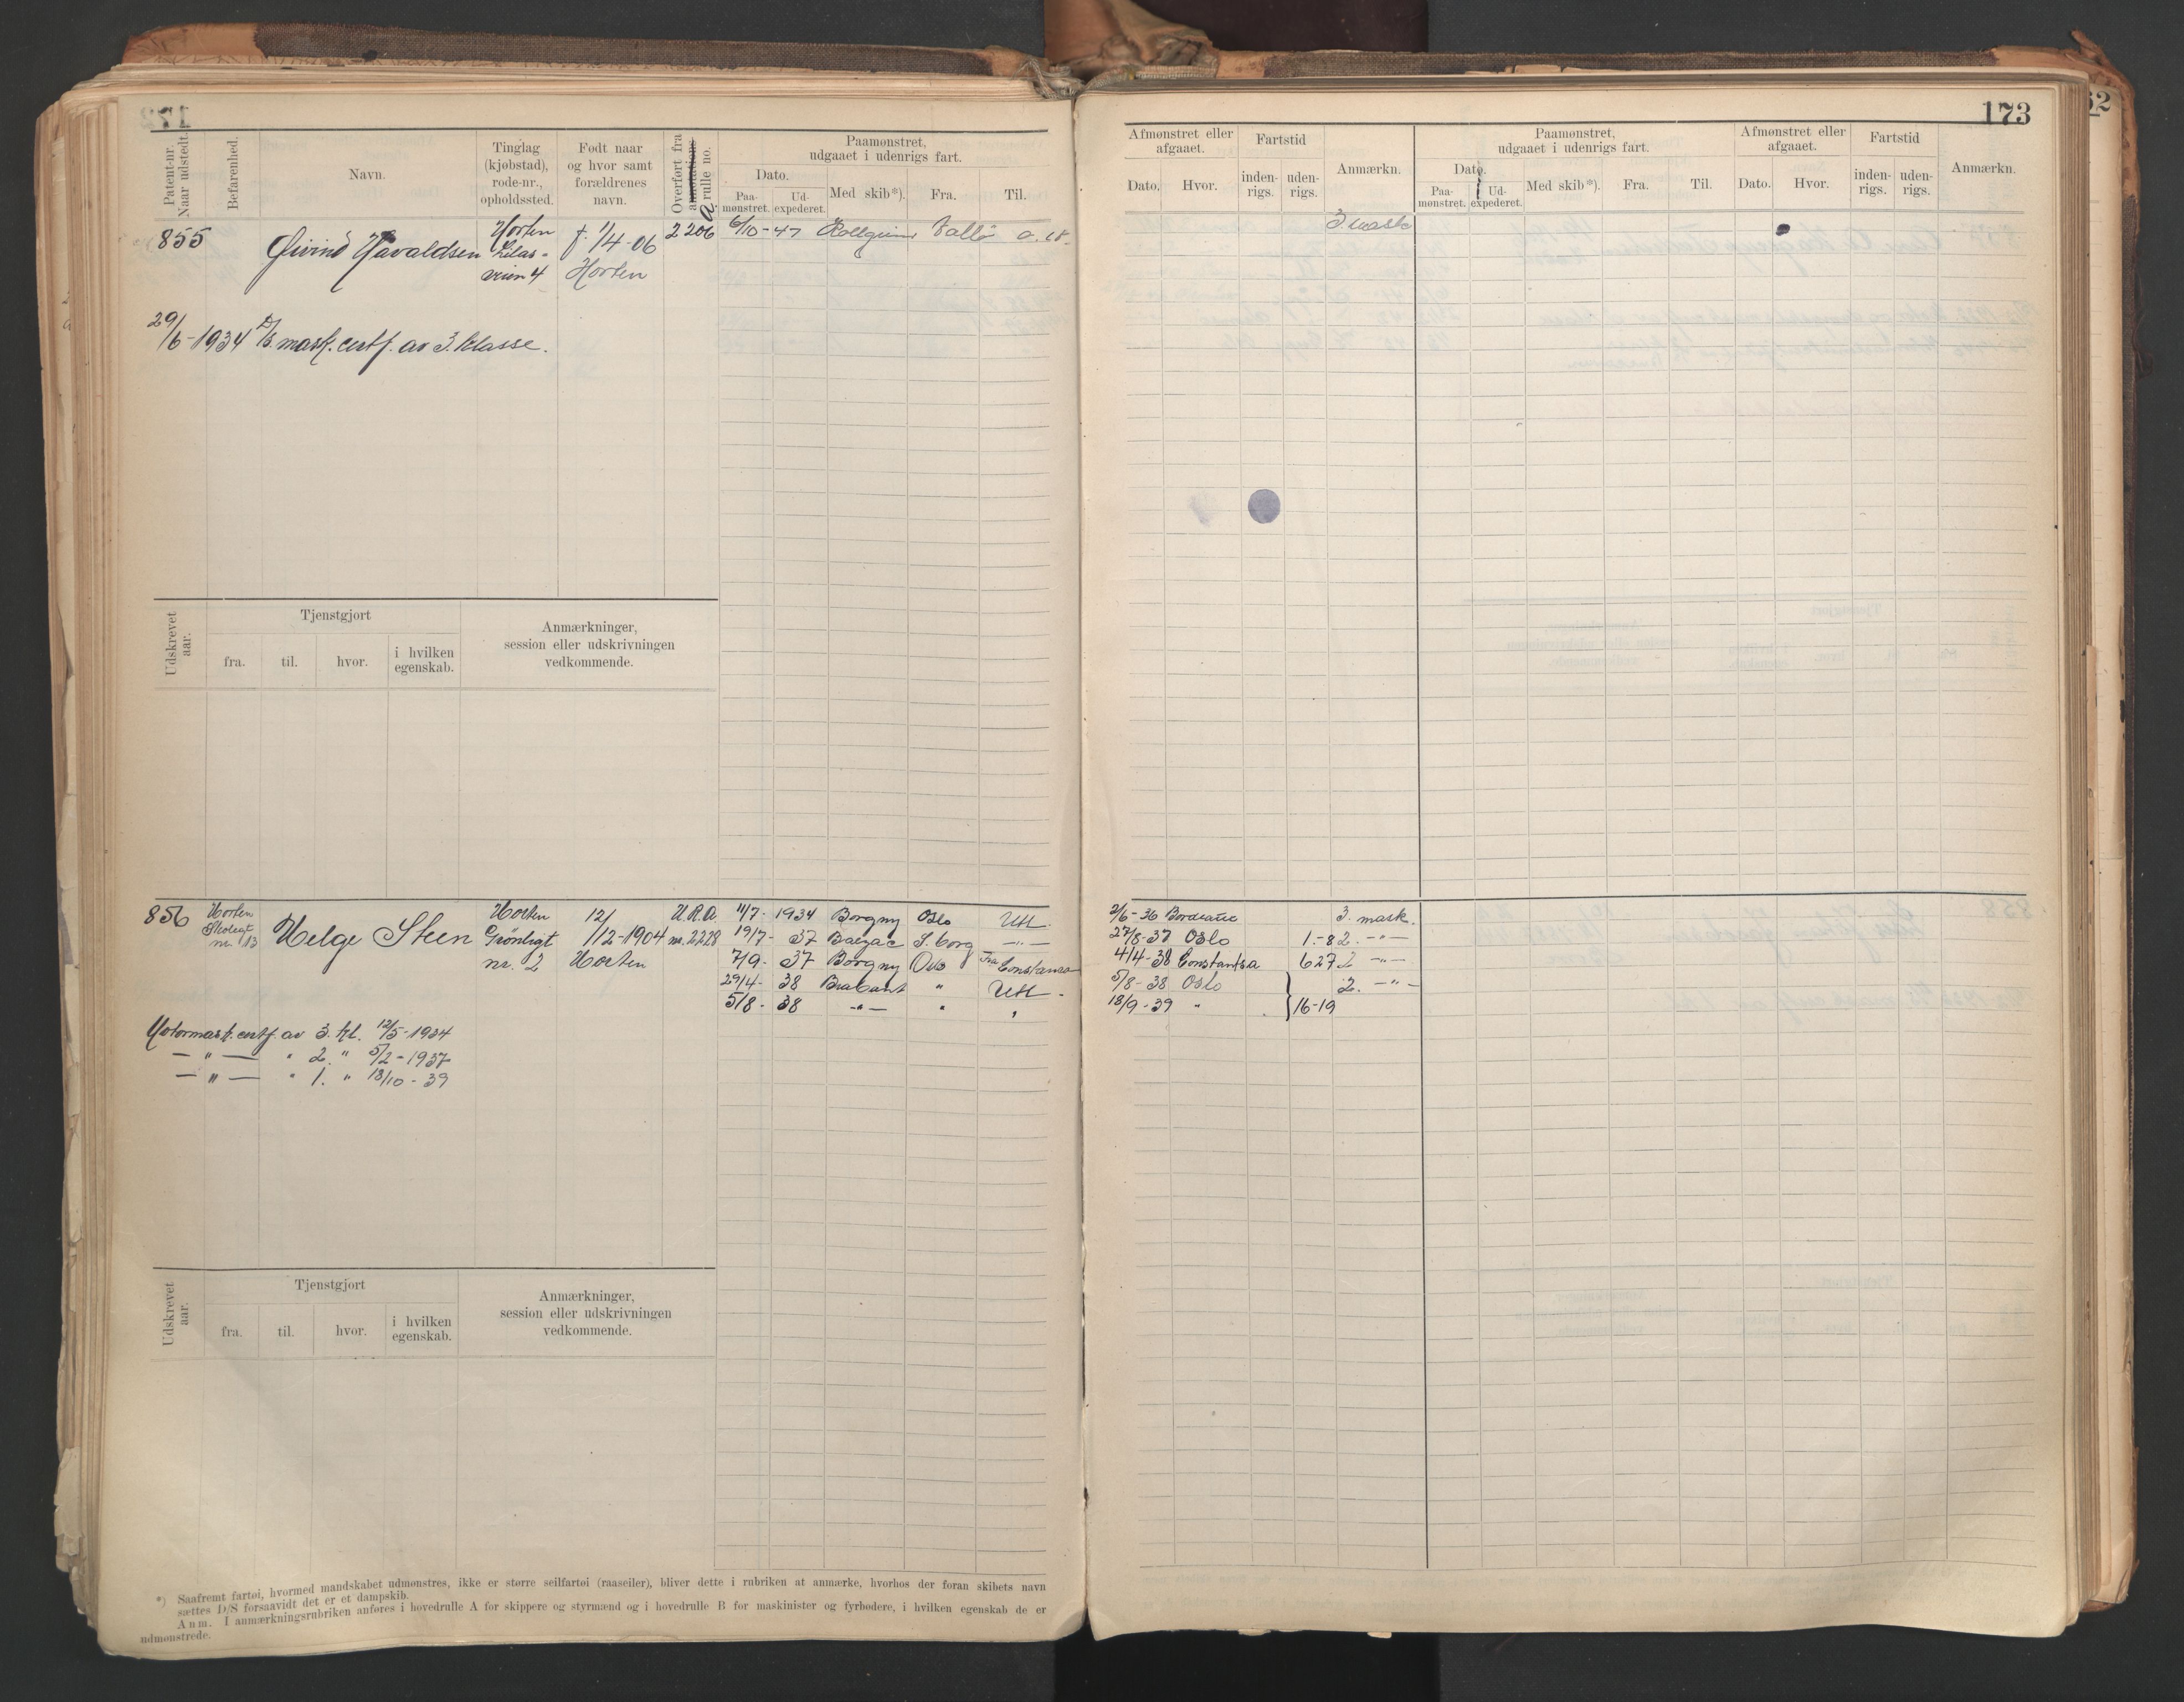 173
Patent-nr. Naar udstedt.
Befarenhed.
Navn.
Tinglag (kjøbstad), rode-nr., opholdssted.
Født naar og hvor samt forældrenes navn.
Overført fra annotations rulle no.
A
Paamønstret, udgaaet i udenrigs fart.
Dato.
Paa-mønstret.
Ud-expederet.
Med skib*).
Fra.
Til.
Afmønstret eller afgaaet.
Dato.
Hvor.
Fartstid
inden-rigs.
uden-rigs.
Anmærkn.
Paamønstret, udgaaet i udenrigs fart.
Dato.
Paa-mønstret.
Ud-expederet.
Med skib*).
Fra.
Til.
Afmønstret eller afgaaet.
Dato.
Hvor.
Fartstid
inden-rigs.
uden-rigs.
Anmærkn.
855
Øivind Havaldsen
Horten
veien 4
f. 1/4-06
Horten
2206
6/10-47
Vallö
3 mask
29/6-1934 D/S. mask. certf. av 3. klasse.
Udskrevet aar.
Tjenstgjort
fra.
til.
hvor.
i hvilken egenskab.
Anmærkninger,
session eller udskrivningen
vedkommende.
856
Horten
nr. 13
Helge Steen
Horten
Grönligt
nr. 2
12/12-1904
Horten
U.R.A.
nr. 2228
11/7- 1934 Borgny Oslo Utl.
2/6-36 Bordeaux 3. mask.
19/7- 37 Balzac S.borg —"—
27/8-37 Oslo 1.-8 2. —"—
7/9- 37 Borgny Oslo Fra Constanza
4/4-38 Constantsa 6 27 2 —"—
29/4- 38 Brabant " Utl.
5/8-38 Oslo 2. —"—
5/8- 38 —"— " "
18/9-39 " 16-19
Motormask. certf. av 3. kl. 12/5-1934
— " — " 2. " 5/2-1937
— " — " 1. " 18/10-39
Udskrevet aar.
Tjenstgjort
fra.
til.
hvor.
i hvilken egenskab.
Anmærkninger,
session eller udskrivningen
vedkommende.
*) Saafremt fartøi, hvormed mandskabet udmønstres, ikke er større seilfartøi (raaseiler), bliver dette i rubriken at anmærke, hvorhos der foran skibets navn
sættes D/S forsaavidt det er et dampskib.
Anm. I anmærkningsrubriken anføres i hovedrulle A for skippere og styrmænd og i hovedrulle B for maskinister og fyrbødere, i hvilken egenskab de er
udmønstrede.